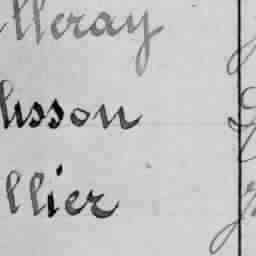 lleray
lisson
llier